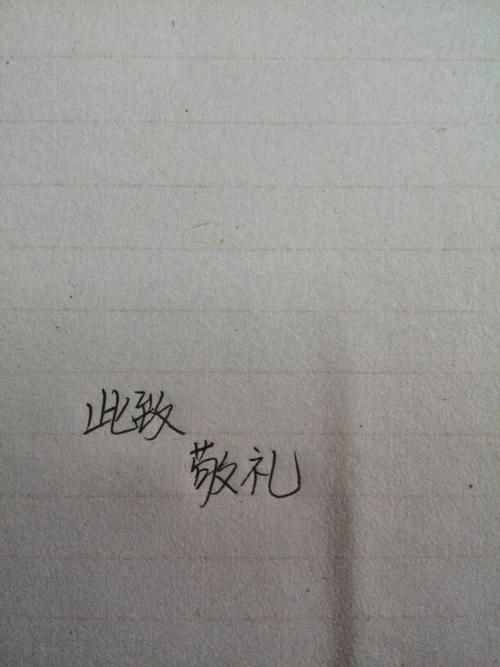 此致
敬礼